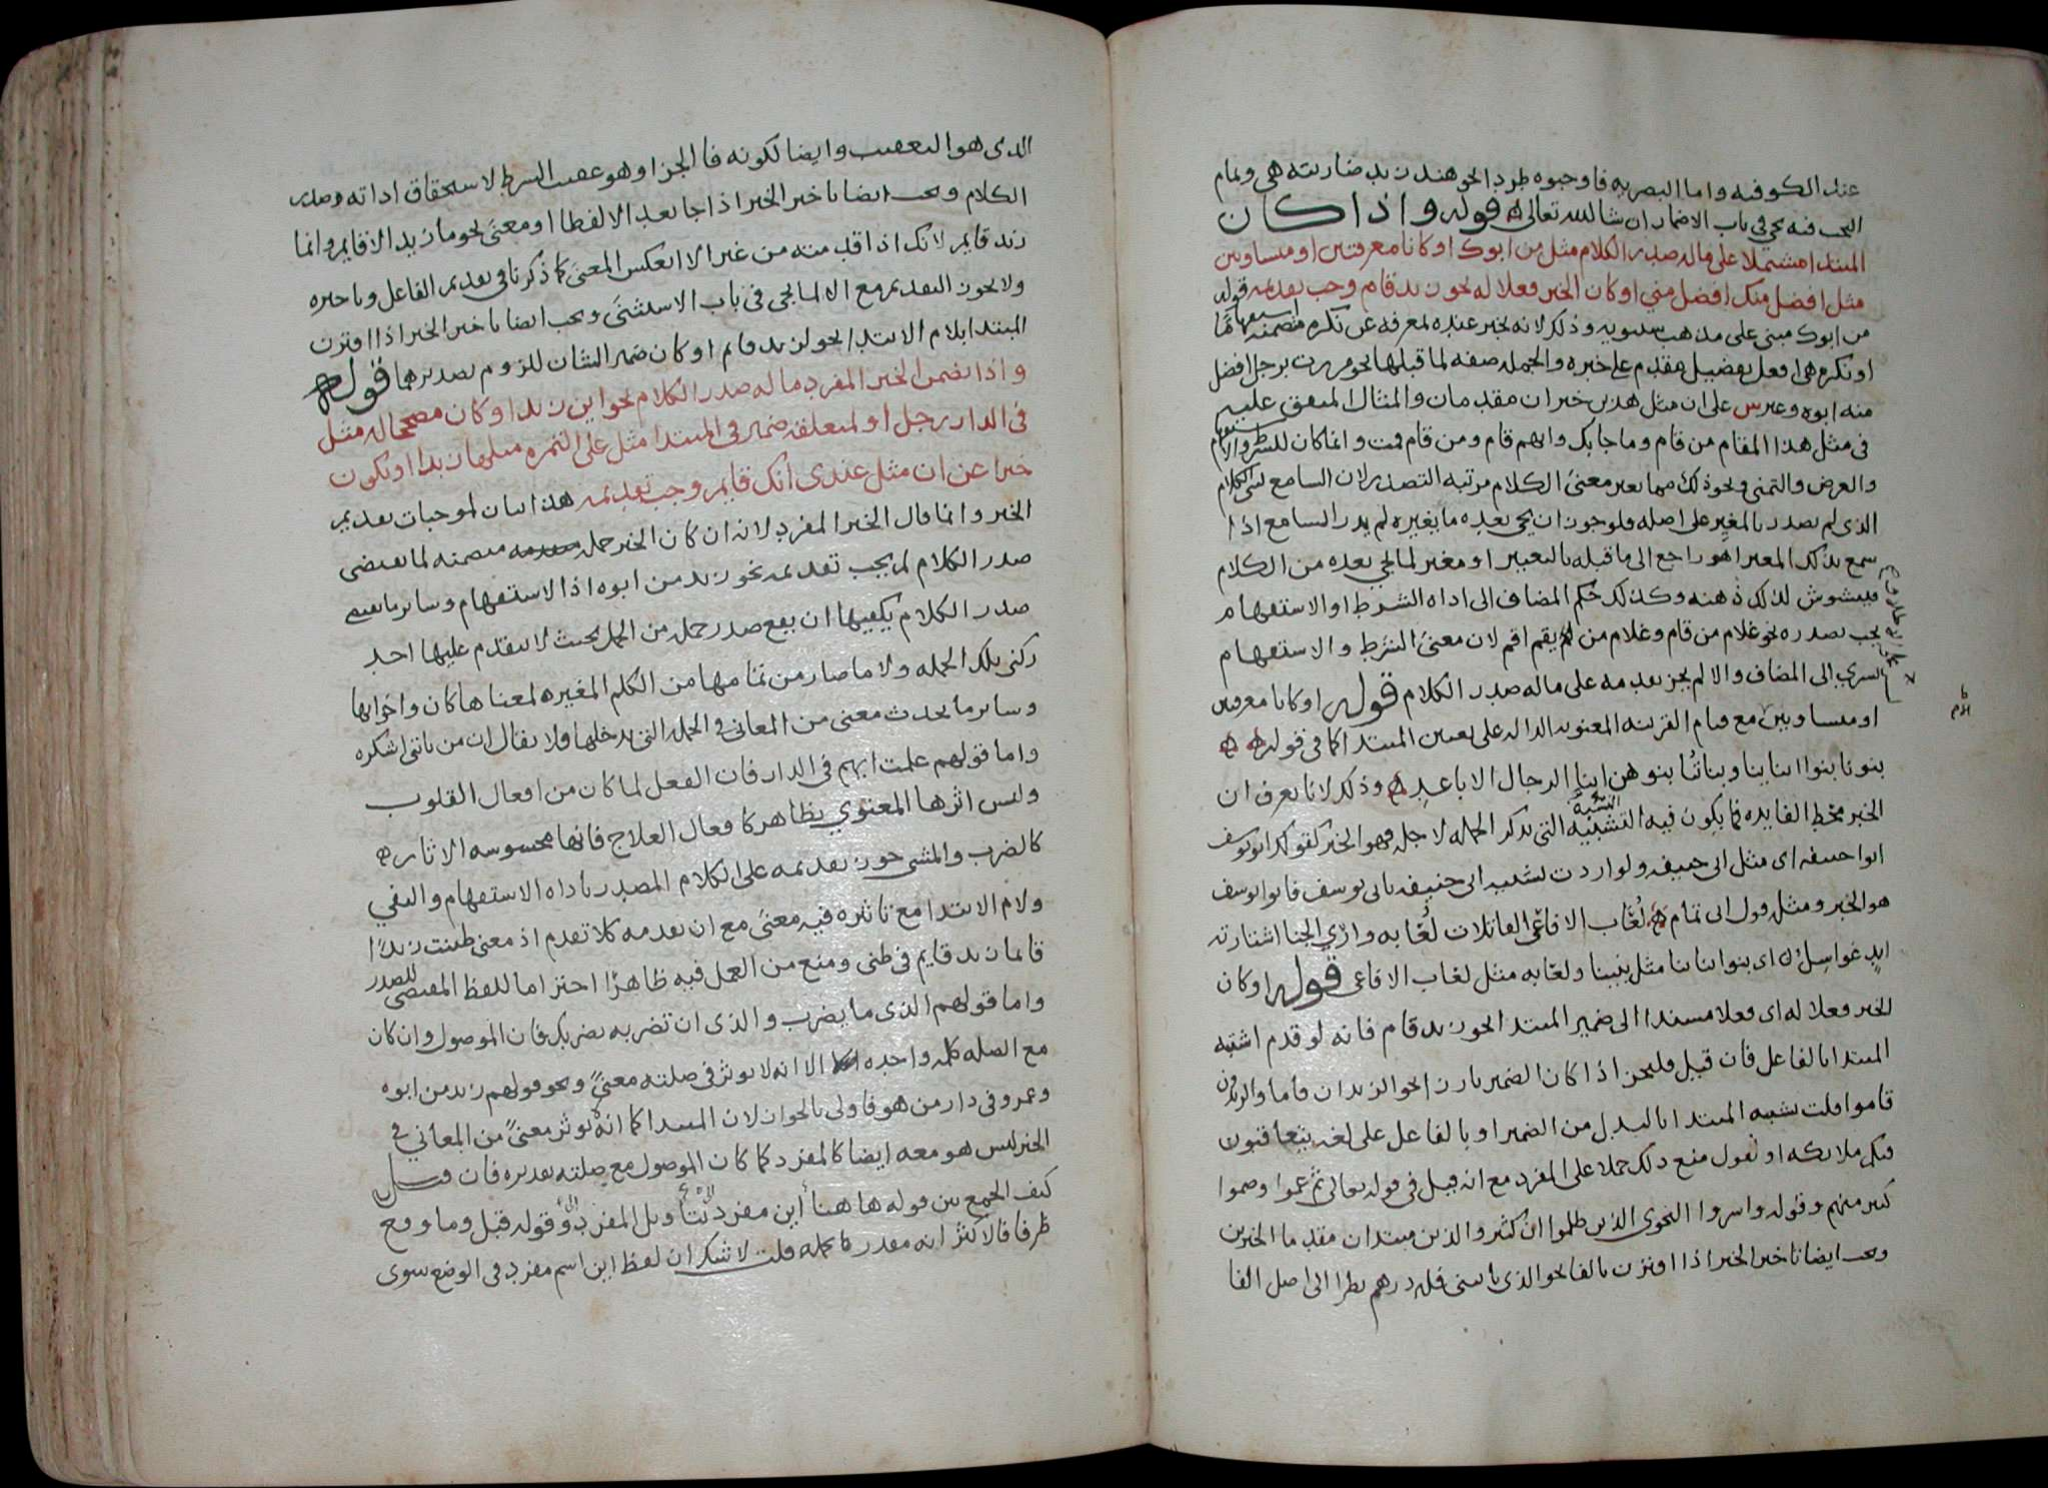 عند الكوفيه واما البصريه فاوجبوه طرد الخو هند زيد ضاربته هي وتمام
البحث فيه يجي في باب الاضمار ان شا الله تعالى قوله واذا كان
المبتدا مشتملا على ماله صدر الكلام مثل من ابوك او كانا معرفتين او متساويين
مثل افضل منك افضل مني او كان الخبر فعلا له نحو زيد قام وجب تقديمه قوله
من ابوك مبني على مذهب سيبويه وذلك لانه يخبر عنده بمعرفه عن نكره متضمنه استفهاما
او نكره هي افعل تفضيل مقدم على خبره والجمله صفه لما قبلها نحو مررت برجل افضل
منه ابوه وغير س على ان مثل هذين خبران مقدمان والمثال المتفق عليه
في مثل هذا المقام من قام وما جا بك وايهم قام ومن قام قمت وانما كان للشرط والاستفهام
والعرض والتمني ونحو ذلك مما يغير معنى الكلام مرتبه التصدر لان السامع يبني الكلام
الذي لم يصدر بالمغير على اصله فلو جوز ان يجي بعده ما يغيره لم يدر السامع اذا
سمع بذلك المغير اهو راجع الى ما قبله بالتغيير او مغير لما يجي بعده من الكلام
فيتشوش لذلك ذهنه وكذلك حكم المضاف الى اداه الشرط او الاستفهام
يجب تصدره نحو غلام من قام وغلام من يقم اقم لان معنى الشرط والاستفهام
يسري الى المضاف والا لم يجز تقدمه على ماله صدر الكلام قوله او كانا معرفتين
او متساويين مع قيام القرينه المعنويه الداله على تعيين المبتدا كما في قوله
بنونا بنوا ابناينا وبناتنا بنوهن ابنا الرجال الاباعد وذلك لانا نعرف ان
الخبر محط الفايده فما يكون فيه التشبيه التي يذكر الجمله لاجله فهو الخبر كقولك ابو يوسف
ابو حنيفه اي مثل ابي حنيفه ولو اردت تشبيه ابي حنيفه بابي يوسف فابو يوسف
هو الخبر ومثله قول ابي تمام لعاب الافاعي القاتلات لعابه واري الجنا اشتارته
ايد عواسل اي بنوا ابنانا مثل بنينا ولعابه مثل لعاب الافاعي قوله او كان
الخبر فعلا له اي فعلا مسندا الى ضمير المبتدا نحو زيد قام فانه لو قدم اشتبه
المبتدا بالفاعل فان قيل فليجز اذا كان الضمير بارزا نحو الزيدان قاما والزيدون
قاموا قلت يشتبه المبتدا بالبدل من الضمير او بالفاعل على لغه يتعاقبون
فيكم ملائكه او نقول منع ذلك حملا على المفرد مع انه قيل في قوله تعالى ثم عموا وصموا
كثير منهم وقوله واسروا النجوى الذين ظلموا ان كثير والذين مبتدان مقدما الخبرين
ويجب ايضا تاخير الخبر اذا اقترن بالفا نحو الذي ياتيني فله درهم نظرا الى اصل الفا
الذي هو التعقيب وايضا لكونه فا الجزا وهو عقيب الشرط لاستحقاق اداته صدر
الكلام ويجب ايضا تاخير الخبر اذا جا بعد الا لفظا او معنى نحو ما زيد الا قايم وانما
زيد قايم لانك اذا قدمته من غير الا انعكس المعنى كما ذكرنا في تقديم الفاعل وتاخيره
ولا يجوز التقديم مع الا لما يجي في باب الاستثنى ويجب ايضا تاخير الخبر اذا اقترن
المبتدا بلام الابتدا نحو لزيد قايم او كان ضمير الشان للزوم تصديرهما قوله
واذا تضمن الخبر المفرد ماله صدر الكلام نحو اين زيد او كان مصححا له مثل
في الدار رجل او لمتعلقه ضمير في المبتدا مثل على التمره مثلها زبدا او يكون
خبرا عن ان مثل عندي انك قايم وجب تقديمه هذا بيان لموجبات تقديم
الخبر وانما قال الخبر المفرد لانه ان كان الخبر جمله متضمنه لما يقتضي
صدر الكلام لم يجب تقديمه نحو زيد من ابوه اذ الاستفهام وساير ما يقتضي
صدر الكلام يكفيها ان يقع صدر جمله من الجمل بحيث لا يتقدم عليها احد
ركني تلك الجمله ولا ما صار من تمامها من الكلم المغيره لمعناها كان واخواتها
وساير ما يحدث معنى من المعاني في الجمله التي يدخلها ولا يقال ان من ياتني اشكره
واما قولهم علمت ايهم في الدار فان الفعل لما كان من افعال القلوب
وليس اثرها المعنوي بظاهر كافعال العلاج فانها محسوسه الاثار
كالضرب والمشي جوز تقديمه على الكلام المصدر باداه الاستفهام والنفي
ولام الابتدا مع تاثيره فيه معنى مع ان تقدمه كلا تقدم اذ معنى ظننت زيدا
قايما زيد قايم في ظني ومنع من العمل فيه ظاهرا احتراما للفظ المقتضي للصدر
واما قولهم الذي ما يضرب والذي ان تضربه يضربك فان الموصول وان كان
مع الصله كلمه واحده الا انه لا يوثر في صلته معنى ونحو قولهم زيد من ابوه
وعمرو في دار من هو فاولى بالجواز لان المبتدا كما انه لا يوثر معنى من المعاني في
الخبر ليس هو معه ايضا كالمفرد كما كان الموصول مع صلته بتقديره فان قيل
كيف الجمع بين قوله هاهنا اين مفرد وقوله قبل وما وقع
ظرفا فالاكثر انه مقدر بجمله قلت لا شك ان لفظ اين اسم مفرد في الوضع سوى